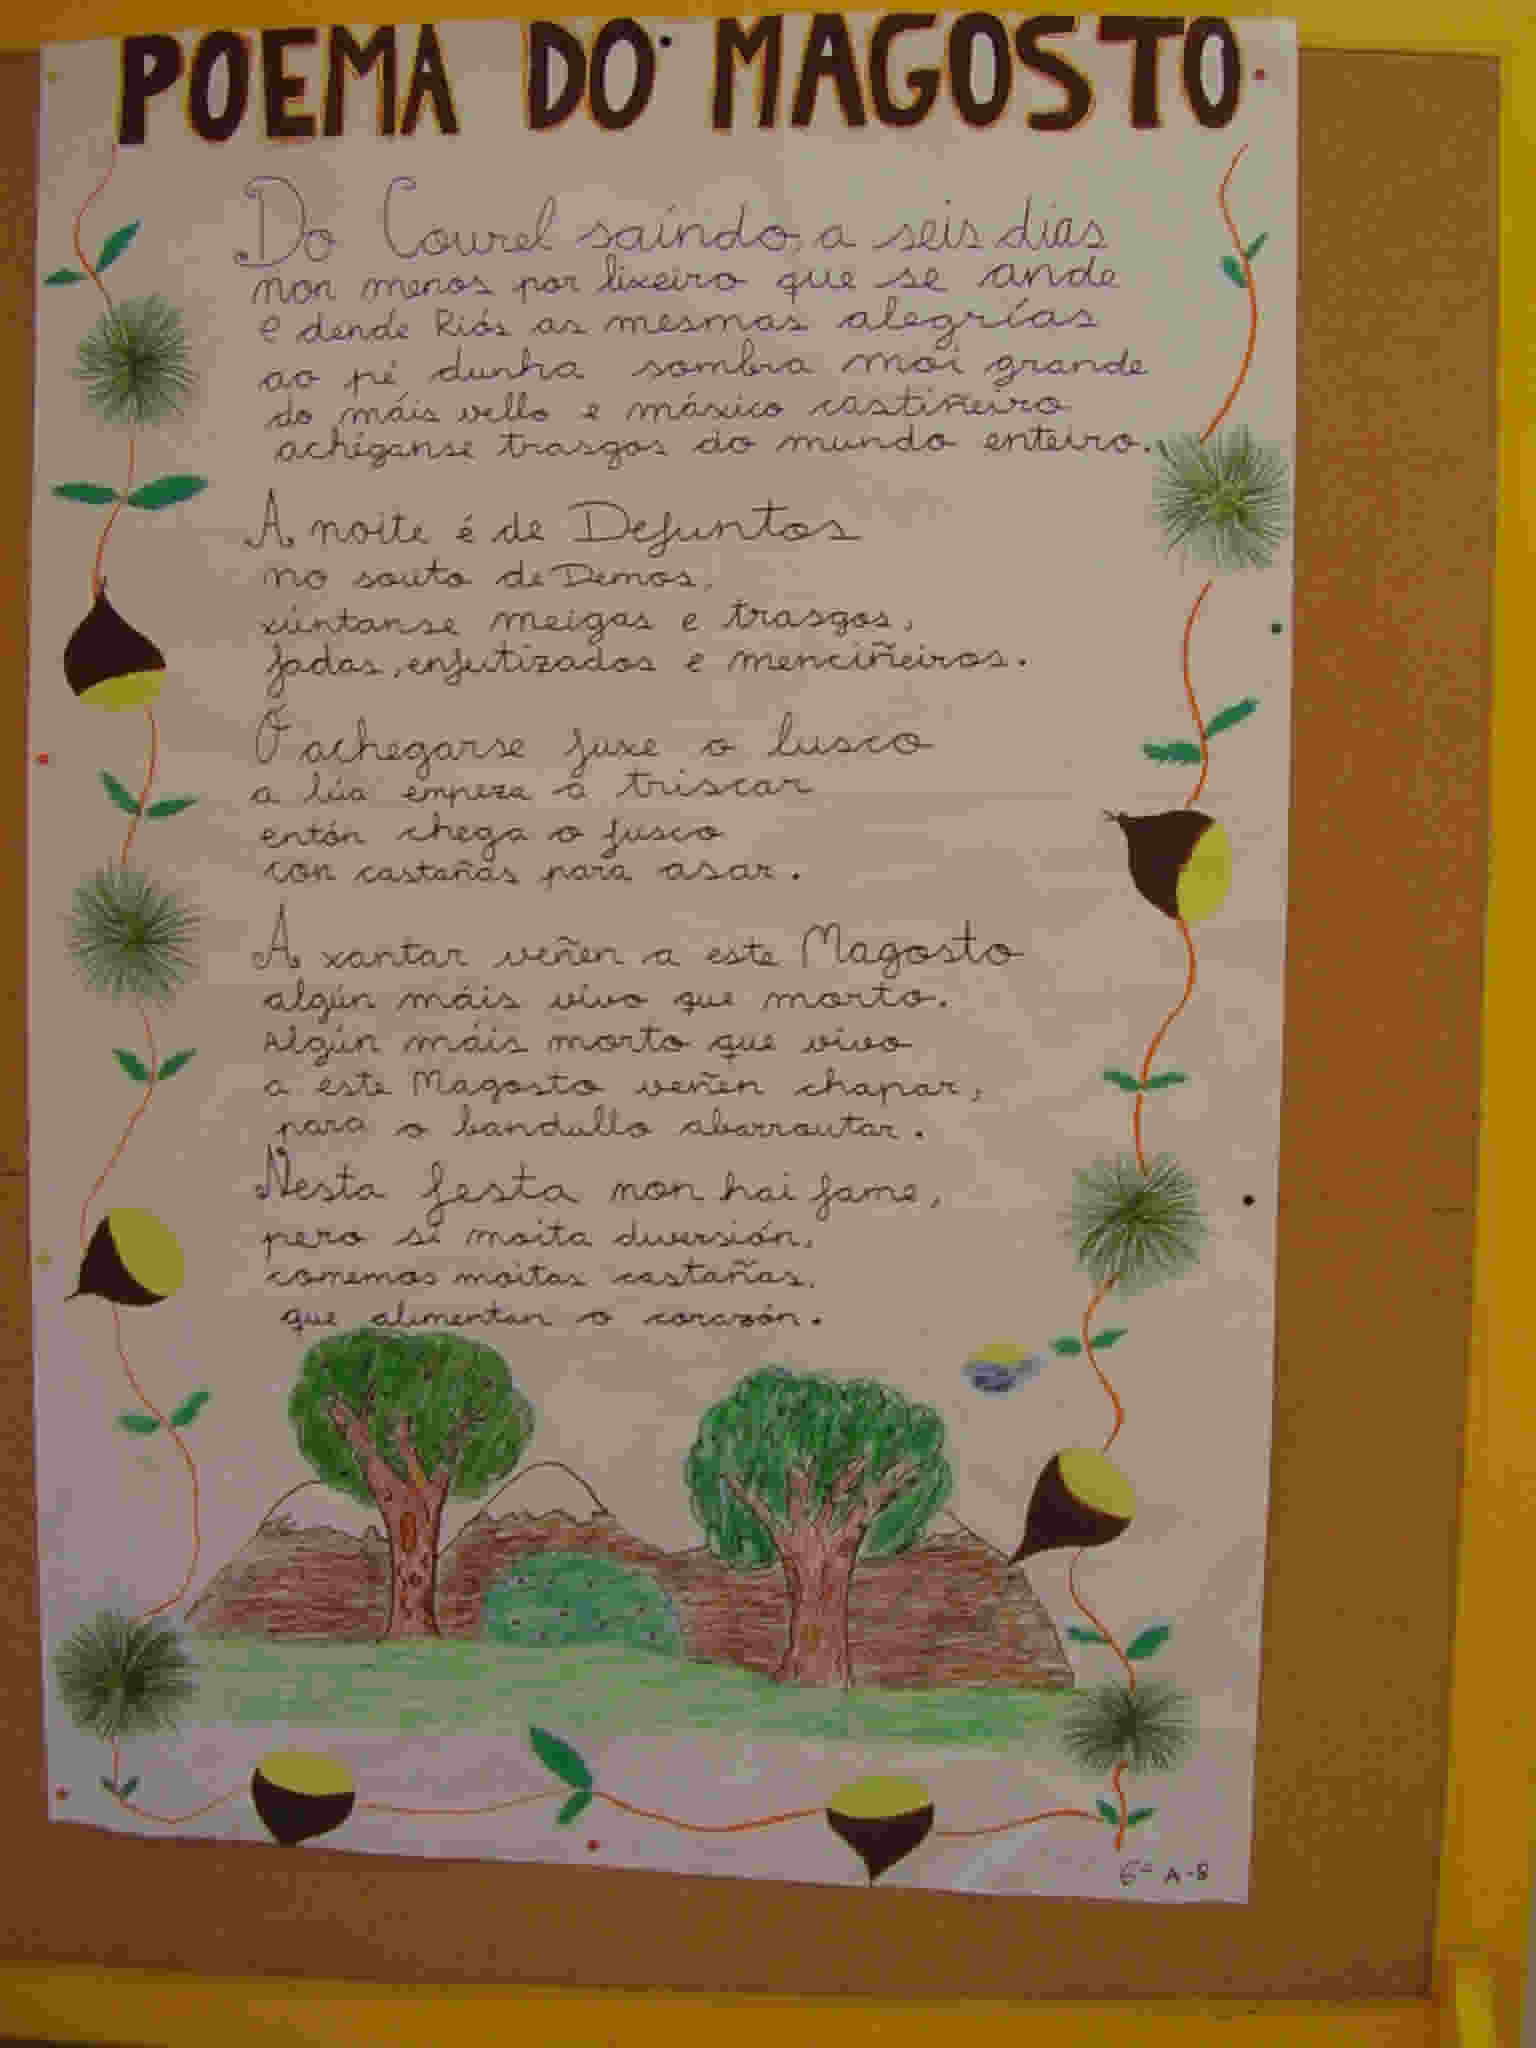 POEMA DO MAGOSTO
Do Courel saíndo, a seis días
non menos por lixeiro que se ande
e dende Riós as mesmas alegrías
ao pé dunha sombra moi grande
do máis vello e máxico castiñeiro
achéganse trasgos do mundo enteiro.
A noite é de Defuntos
no souto de Demos,
xúntanse meigas e trasgos,
fadas, enfutizados e menciñeiros.
Ó achegarse fuxe o lusco
a lúa empeza a triscar
entón chega o fusco
con castañas para asar.
A xantar veñen a este Magosto
algún máis vivo que morto.
Algún máis morto que vivo
a este Magosto veñen chapar,
para o bandullo abarroutar.
Nesta festa non hai fame,
pero si moita diversión,
comemos moitas castañas,
que alimentan o corazón.
6º A-B